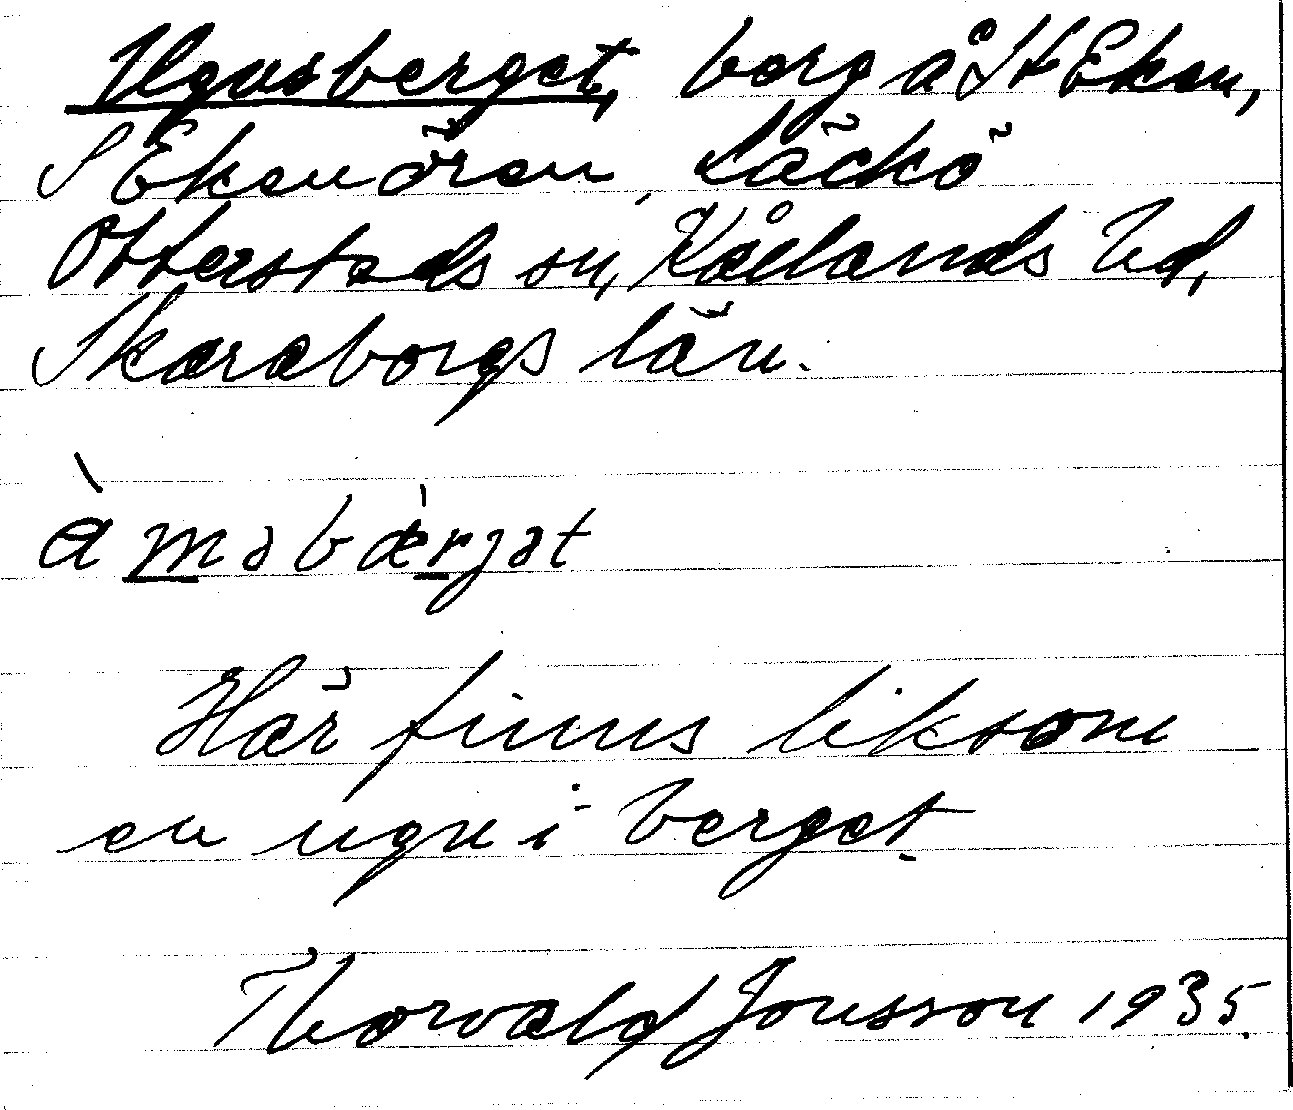 Ugnsberget, berg å St Eken,
S Ekenören, Läckö
Otterstads sn, Kållands hd,
Skaraborgs län.
àməbæ̀rjət
Här finns liksom
en ugn i berget.
Thorvald Jonsson 1935.